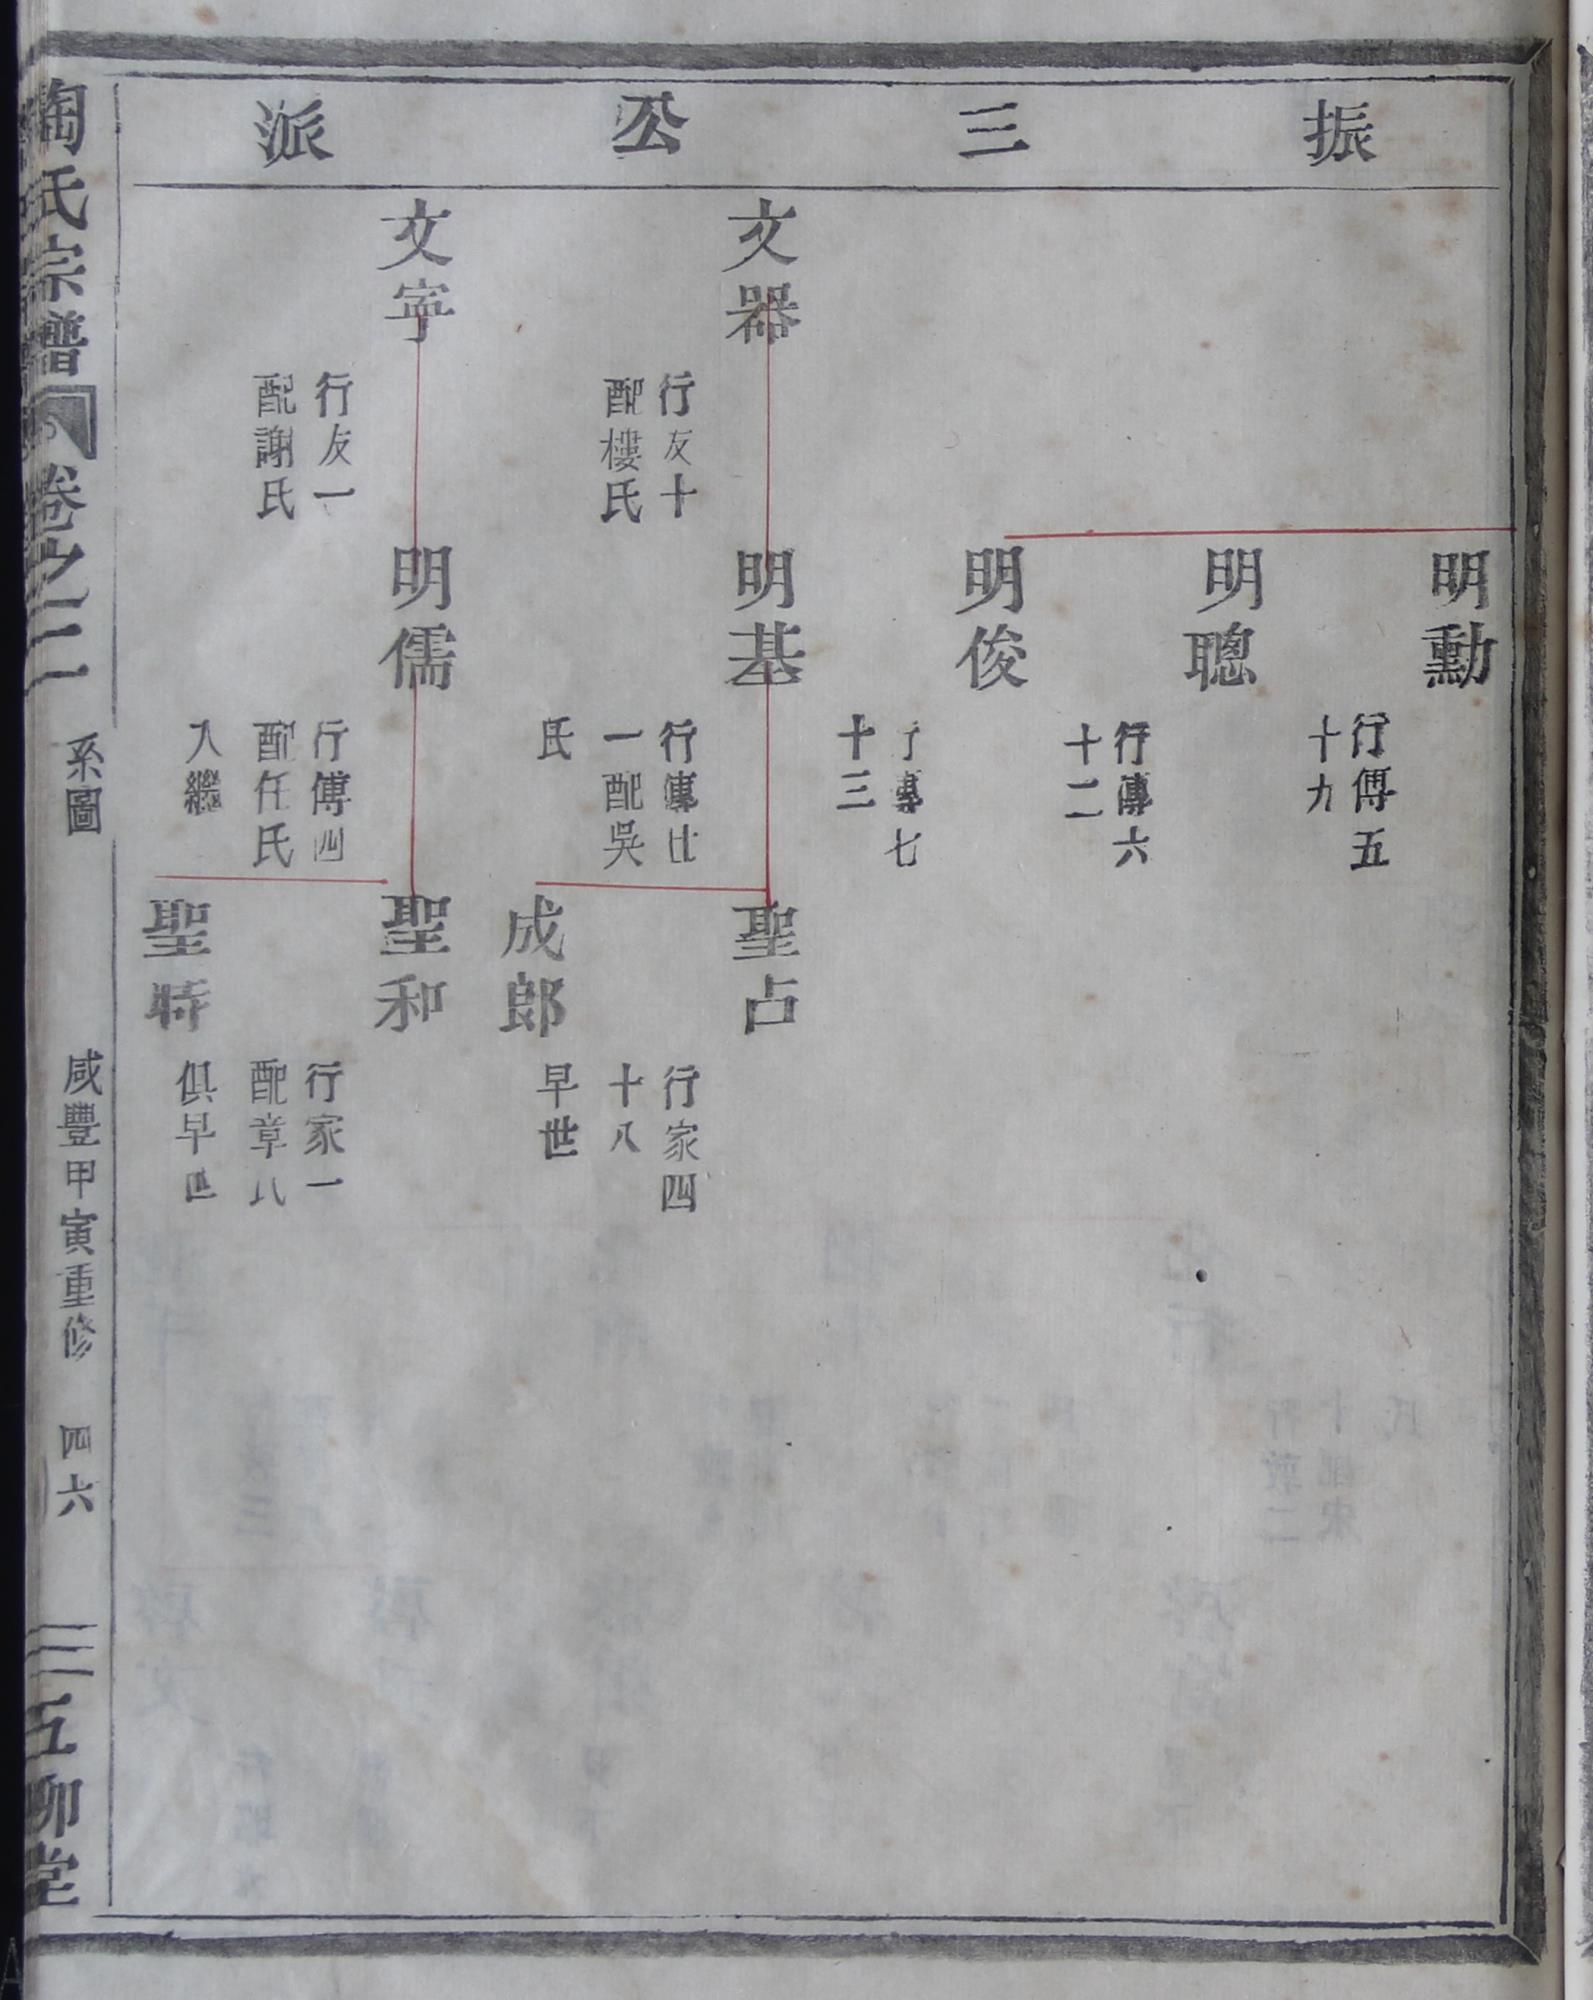 振三公派
明勳
行傳五
十九
明聰
行傳六
十二
明俊
行傳七
十三
文器
行友十
配樓氏
明基
行傳
一配吳
氏
聖占
行家四
十八
早世
成郎
文寧
行友一
配謝氏
明儒
行傳四
配任氏
入繼
聖和
行家一
配章氏
俱早世
聖時
陶氏宗譜
卷之二
系圖
咸豐甲寅重修
四六
五柳堂